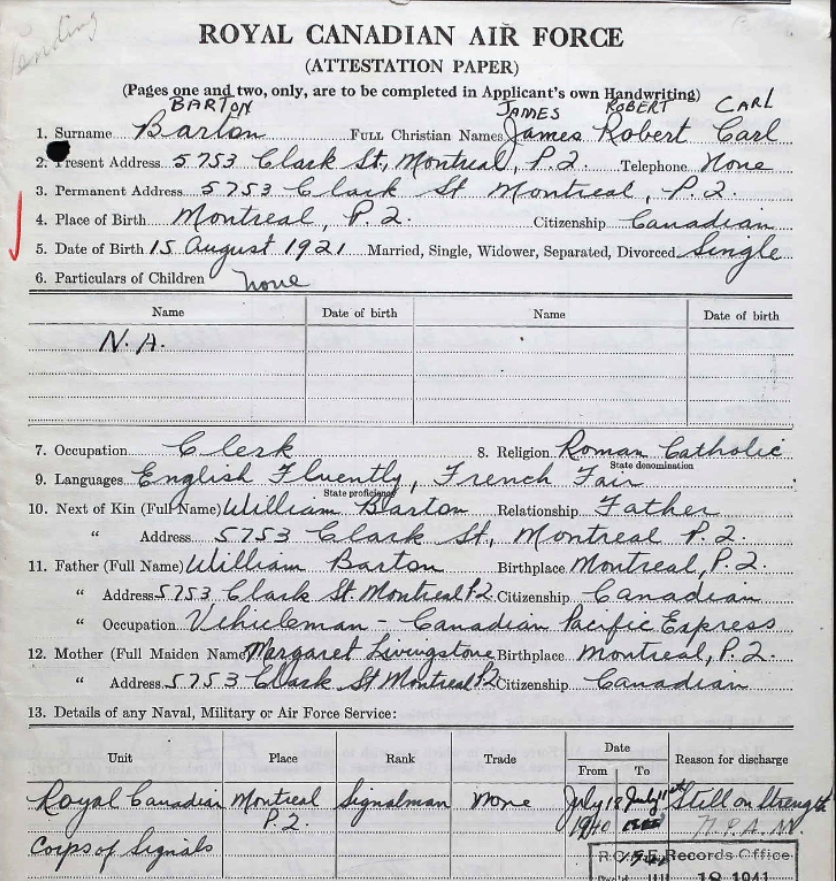 Pending
ROYAL CANADIAN AIR FORCE
(ATTESTATION PAPER)
(Pages one and two, only, are to be completed in Applicant's own Handwriting)
BARTON JAMES ROBERT CARL
1. Surname Barton FULL Christian Names James Robert Carl
2. Present Address 5753 Clark St, Montreal, P.Q. Telephone None
3. Permanent Address 5753 Clark St Montreal, P.Q.
4. Place of Birth Montreal, P.Q. Citizenship Canadian
5. Date of Birth 15 August 1921 Married, Single, Widower, Separated, Divorced Single
6. Particulars of Children None
Name Date of birth Name Date of birth
N.A.
7. Occupation Clerk 8. Religion Roman Catholic
State denomination
9. Languages English Fluently, French Fair
State proficiency
10. Next of Kin (Full Name) William Barton Relationship Father
" Address 5753 Clark St, Montreal P.Q.
11. Father (Full Name) William Barton Birthplace Montreal, P.Q.
" Address 5753 Clark St. Montreal P.Q. Citizenship Canadian
" Occupation Vehicleman - Canadian Pacific Express
12. Mother (Full Maiden Name) Margaret Livingstone Birthplace Montreal, P.Q.
" Address 5753 Clark St Montreal P.Q. Citizenship Canadian
13. Details of any Naval, Military or Air Force Service:
Unit Place Rank Trade Date Reason for discharge
From To
Royal Canadian Montreal Signalman None July 18 July 11th Still on Strength
P.Q. 1940 N.P.A.M.
Corps of Signals
R.C.A.F. Records Office
18 1941